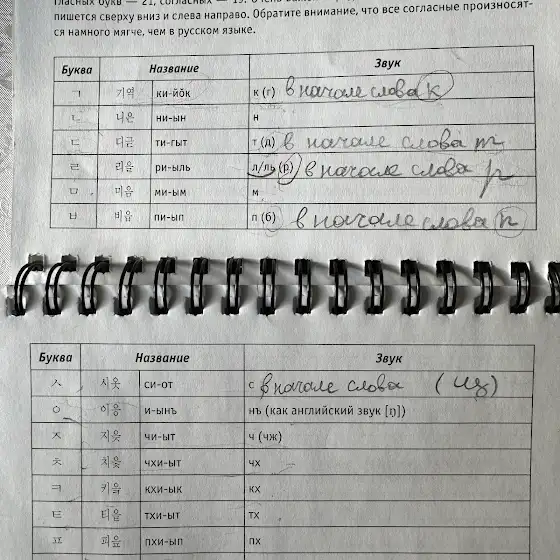 пишется сверху вниз и слева направо. Обратите внимание, что все согласные произносят-
ся намного мягче, чем в русском языке.
Буква Название Звук
ㄱ 기역 ки-йӧк к (г) в начале слова к
ㄴ 니은 ни-ын н
ㄷ 디귿 ти-гыт т (д) в начале слова т
ㄹ 리을 ри-ыль л/ль (р) в начале слова р
ㅁ 미음 ми-ым м
ㅂ 비읍 пи-ып п (б) в начале слова п
Буква Название Звук
ㅅ 시옷 си-от с в начале слова
ㅇ 이응 и-ынъ нъ (как английский звук [ŋ])
ㅈ 지읒 чи-ыт ч (чж)
ㅊ 치읓 чхи-ыт чх
ㅋ 키읔 кхи-ык кх
ㅌ 티읕 тхи-ыт тх
ㅍ 피읖 пхи-ып пх